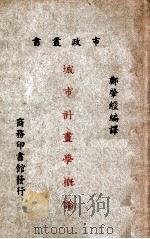 書畫政市
鄭肇經編譯
城市計畫學概論
商務印書館發行